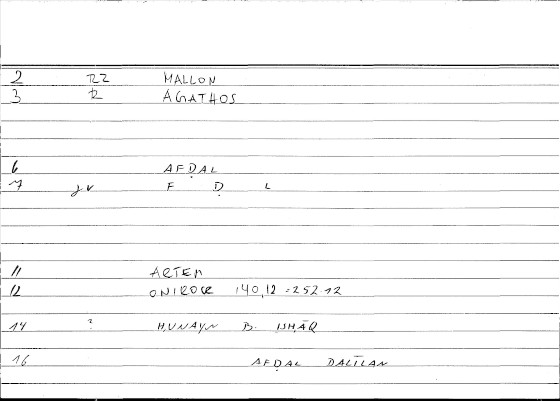 2 RZ MALLON
3 R AGATHOS
6 AFḌAL
7 jv F Ḍ L
11 ARTEM
12 ONIROCR 140,12 = 252.12
14 ? ḤUNAYN B. ISḤĀQ
16 AFḌAL DALĪLAN